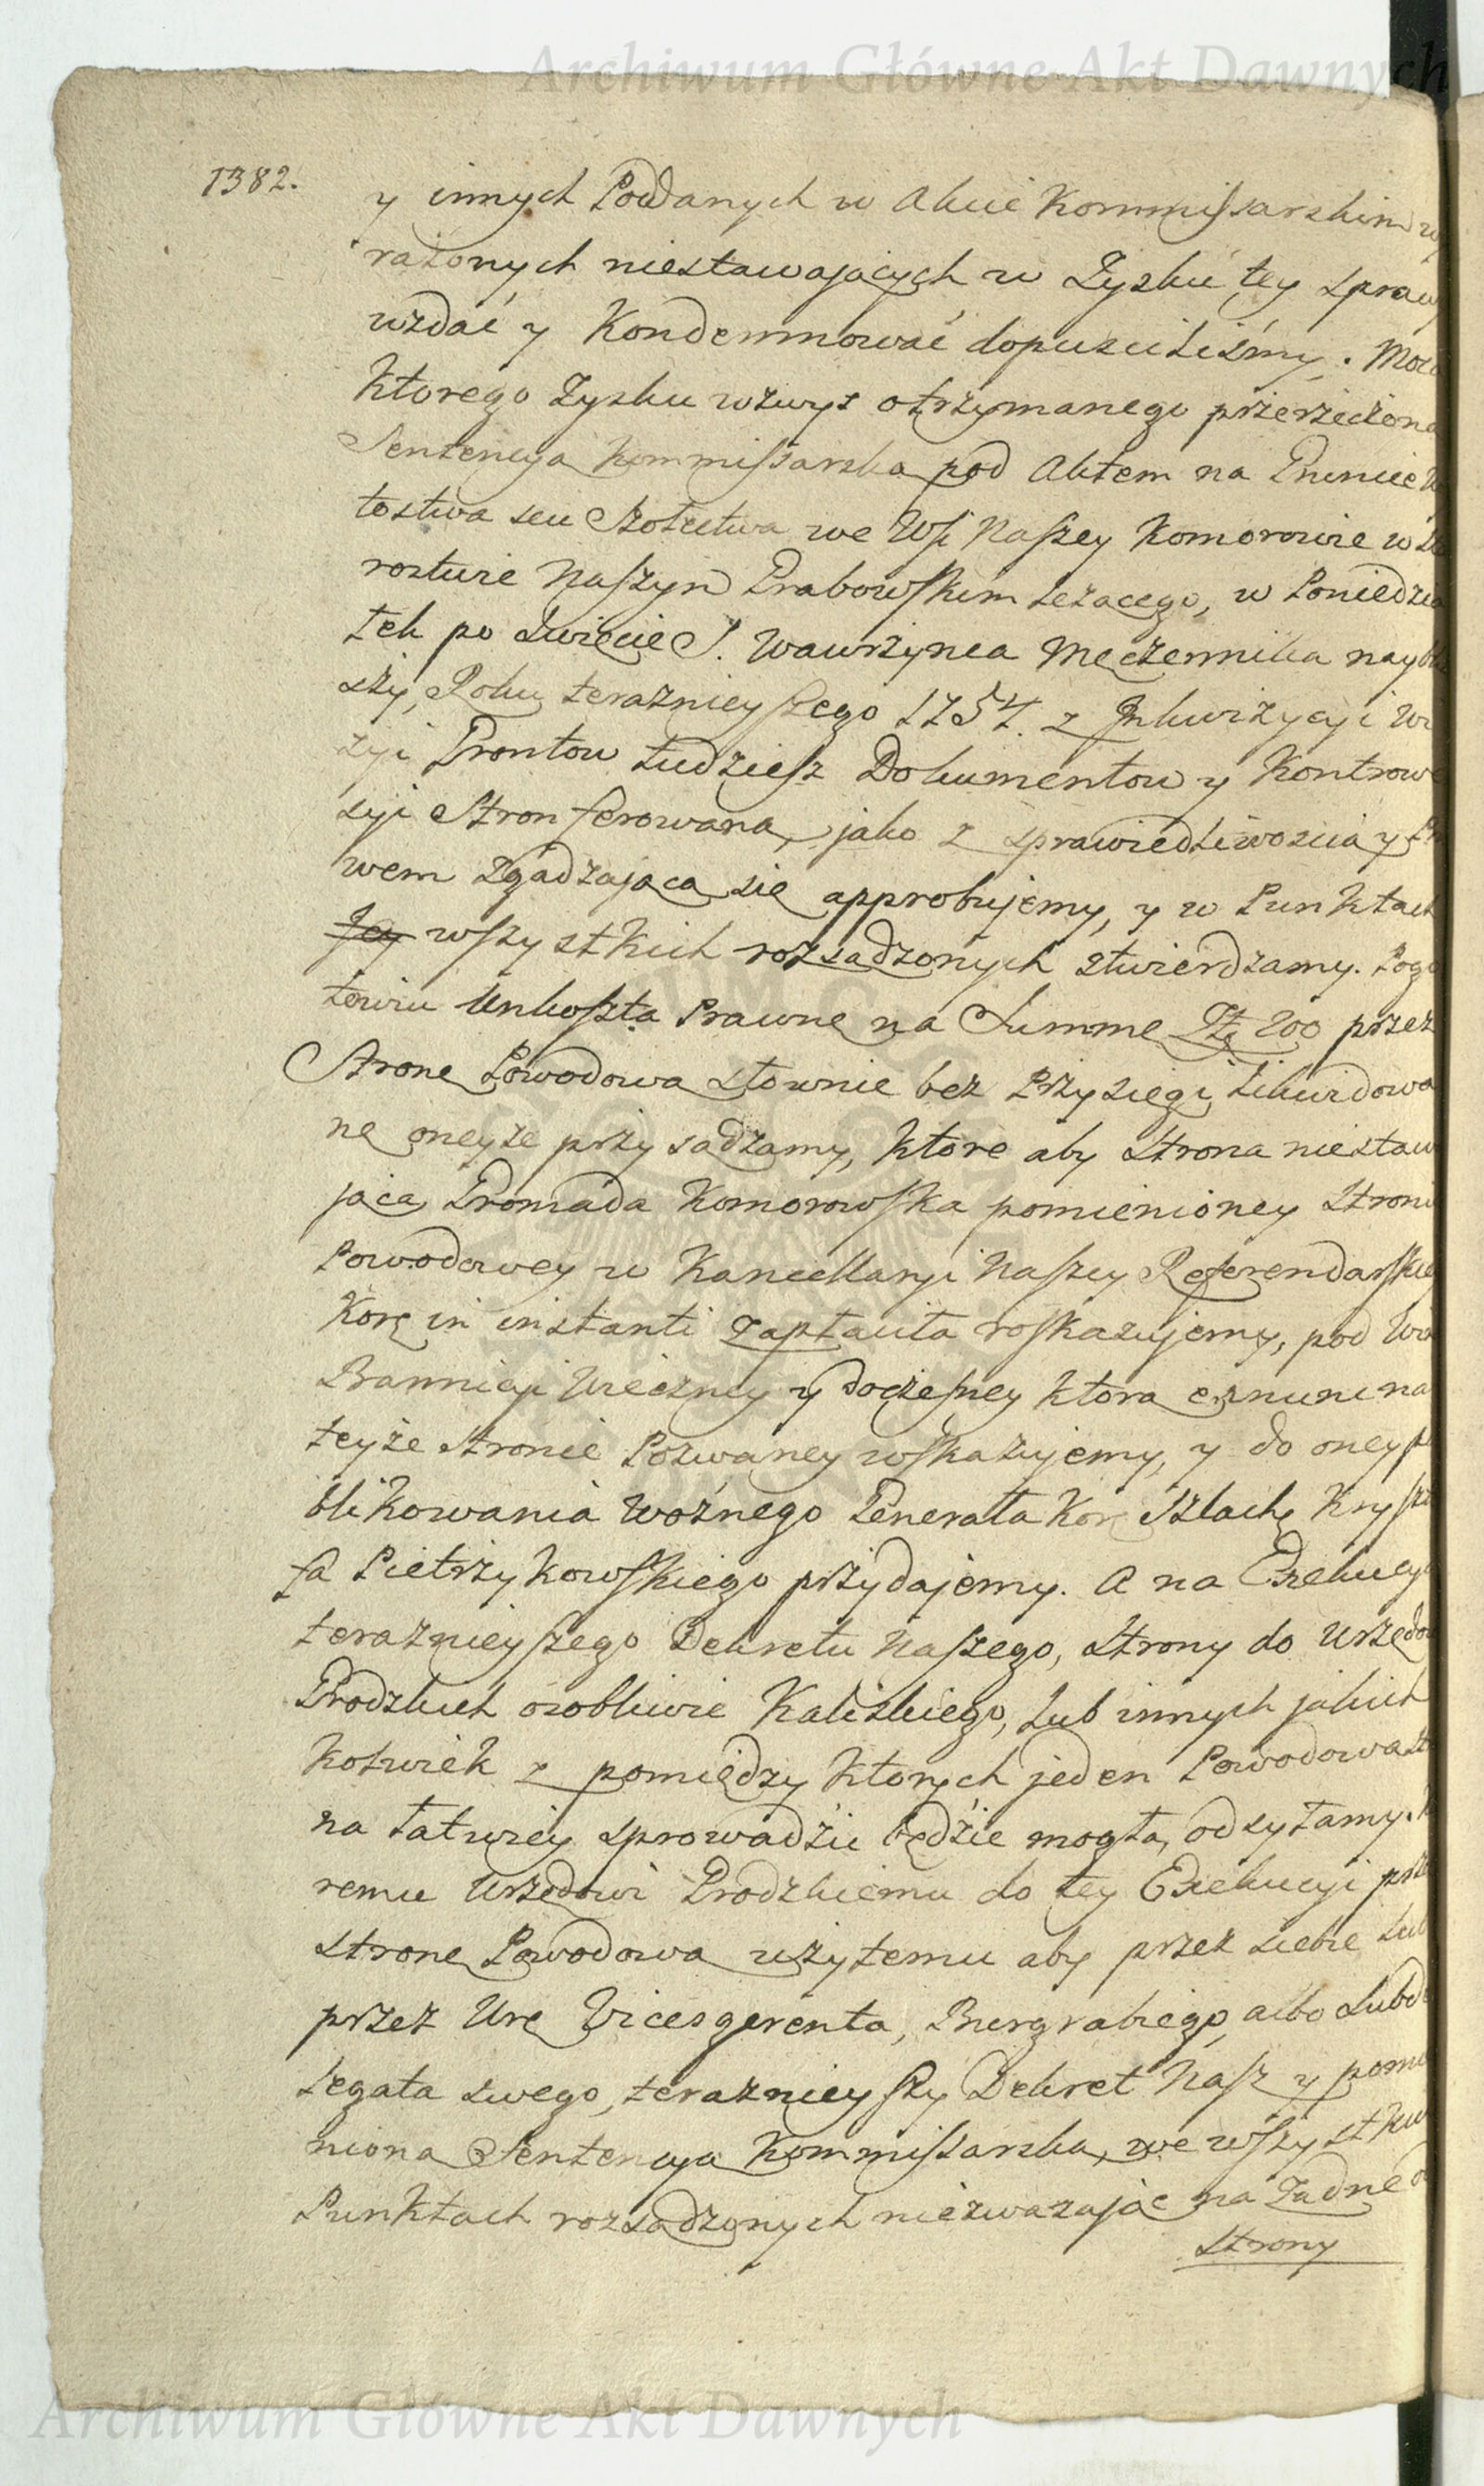 Archiwum Główne Akt Dawnych
1382.
y innych Poddanych w Akcie Kommissarskim
rażonych niestawaiących w Zysku tey spraw
wzdać y Kondemnować dopuściliśmy. Moc
Ktorego Zysku wzwyż otrzymanego przerzeczona
Sentencya Kommissarska pod Aktem na Gruncie
tostwa seu Szołtctwa we Wsi Naszey Komorowie w
rostwie Naszym Grabowskim leżącego, w Poniedzia
łek po Swięcie S. Wawrzynca Męczennika naybli
szy, Roku teraznieyszego 1754. z Inkwizycyi Wi
zyi Grontow tudziesz Dokumentow y Kontrowe
syi Stron ferowana, jako z sprawiedliwoscią y
wem zgadzająca się approbujemy, y w Punktach
Jey wszystkich rozsądzonych stwierdzamy. Pogo
towiu Unkoszta Prawne na Summę Zł: 200 przez
Stronę Powodową słownie bez Przysięgi likwidowa
ne oneyze przysądzamy, które aby Strona niestaw
jąca Gromada Komorowska pomienioney Stroni
Powodowey w Kancellaryi Naszey Referendarskiey
Kor: in instanti zapłaciła roskazujemy, pod Wi
Bannicyi Wieczney y doczesney ktorą ex nunc na
teyże Stronie Pozwaney wskazujemy, y do oney p
blikowania Woźnego Generała Kor: Szlach: Krysz
fa Pietrzykowskiego przydajemy. A na Exekucy
teraznieyszego Dekretu Naszego, Strony do Urzędow
Grodzkich osobliwie Kaliskiego, lub innych jakich
kolwiek z pomiędzy których jeden Powodowa st
na łatwiey sprowadzić będzie mogła, odsyłamy.
remu Urzędowi Grodzkiemu do tey Exekucyi prze
Stronę Powodową użytemu aby przez siebie lub
przez Ur: Vicesgerenta, Burgrabiego, albo Subde
legata swego, teraznieyszy Dekret Nasz y pomie
nioną Sentencyą Kommissarską, we wszystkich
Punktach rozsądzonych niezwazając na żadne
Strony
Archiwum Główne Akt Dawnych